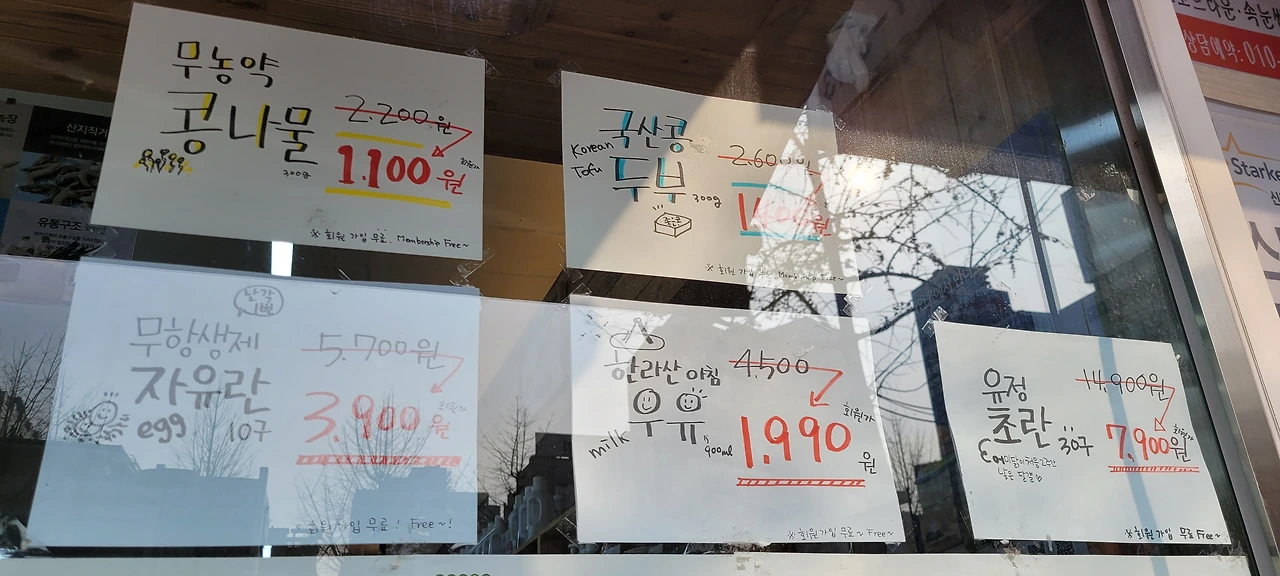 무농약
콩나물
300g
2.200원
1.100원
회원가
※ 회원 가입 무료. Membership Free~
국산콩
Korean
Tofu
두부
300g
2.600
※ 회원 가입 무료 Membership Free~
난각
1번
무항생제
자유란
egg 10구
5.700원
3.900원
회원가
회원 가입 무료! Free~!
한라산 아침
우유
milk
900ml
4.500
1.990
원
회원가
※ 회원 가입 무료~ Free~
유정
초란
30구
낳은 달걀
14.900원
7.900원
회원가
※ 회원 가입 무료 Free~
산지직거
유통구조
상담예약: 010-
Starke